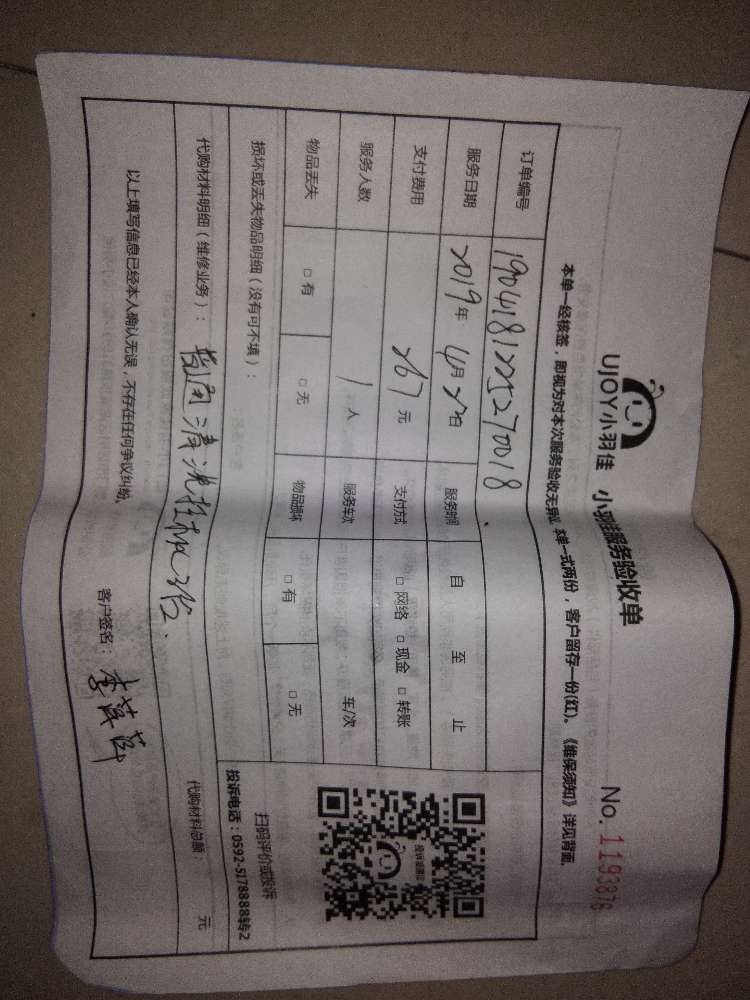 UJOY小羽佳 小羽佳服务验收单 No. 1193876
本单一经核签，即视为对本次服务验收无异议 本单一式两份，客户留存一份(红)。《维保须知》详见背面。
订单编号 1904181225270018
服务日期 2019年 4月 20日 服务时间 自 至 止
支付费用 267元 支付方式 □网络 □现金 □转账
服务人数 1人 服务车次 车/次
物品丢失 □有 □无 物品损坏 □有 □无
损坏或丢失物品明细（没有可不填）：
投诉或建议
扫码评价或投诉
投诉电话：0592-5178888转2
代购材料明细（维修业务）： 清洗挂机3台. 代购材料总额： 元
以上填写信息已经本人确认无误，不存在任何争议纠纷。
客户签名： 李萍萍